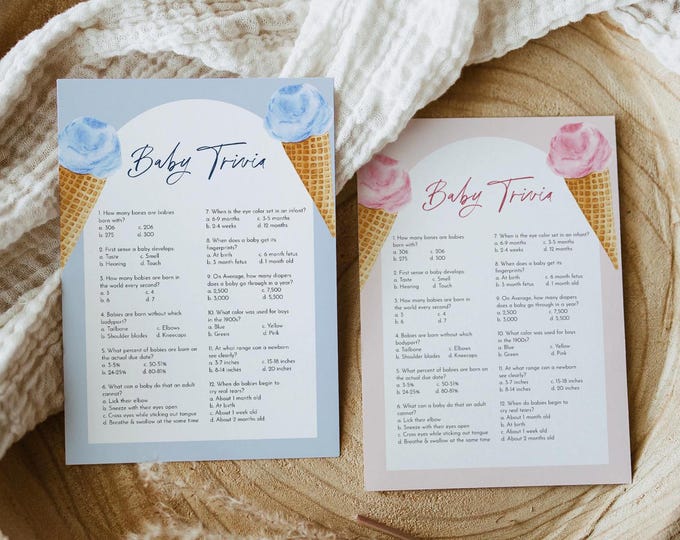 Baby Trivia
1. How many bones are babies
born with?
a. 306 c. 206
b. 275 d. 300
2. First sense a baby develops
a. Taste c. Smell
b. Hearing d. Touch
3. How many babies are born in
the world every second?
a. 3 c. 4
b. 6 d. 7
4. Babies are born without which
bodyport?
a. Tailbone c. Elbows
b. Shoulder blades d. Kneecaps
5. What percent of babies are born on
the actual due date?
a. 3-5% c. 50-51%
b. 24-25% d. 80-81%
6. What can a baby do that an adult
cannot?
a. Lick their elbow
b. Sneeze with their eyes open
c. Cross eyes while sticking out tongue
d. Breathe & swallow at the same time
7. When is the eye color set in an infant?
a. 6-9 months c. 3-5 months
b. 2-4 weeks d. 12 months
8. When does a baby get its
fingerprints?
a. At birth c. 6 month fetus
b. 3 month fetus d. 1 month old
9. On Average, how many diapers
does a baby go through in a year?
a. 2,500 c. 7,500
b. 3,000 d. 5,500
10. What color was used for boys
in the 1900s?
a. Blue c. Yellow
b. Green d. Pink
11. At what range can a newborn
see clearly?
a. 3-7 inches c. 15-18 inches
b. 8-14 inches d. 20 inches
12. When do babies begin to
cry real tears?
a. About 1 month old
b. At birth
c. About 1 week old
d. About 2 months old
Baby Trivia
1. How many bones are babies
born with?
a. 306 c. 206
b. 275 d. 300
2. First sense a baby develops
a. Taste c. Smell
b. Hearing d. Touch
3. How many babies are born in
the world every second?
a. 3 c. 4
b. 6 d. 7
4. Babies are born without which
bodyport?
a. Tailbone c. Elbows
b. Shoulder blades d. Kneecaps
5. What percent of babies are born on
the actual due date?
a. 3-5% c. 50-51%
b. 24-25% d. 80-81%
6. What can a baby do that an adult
cannot?
a. Lick their elbow
b. Sneeze with their eyes open
c. Cross eyes while sticking out tongue
d. Breathe & swallow at the same time
7. When is the eye color set in an infant?
a. 6-9 months c. 3-5 months
b. 2-4 weeks d. 12 months
8. When does a baby get its
fingerprints?
a. At birth c. 6 month fetus
b. 3 month fetus d. 1 month old
9. On Average, how many diapers
does a baby go through in a year?
a. 2,500 c. 7,500
b. 3,000 d. 5,500
10. What color was used for boys
in the 1900s?
a. Blue c. Yellow
b. Green d. Pink
11. At what range can a newborn
see clearly?
a. 3-7 inches c. 15-18 inches
b. 8-14 inches d. 20 inches
12. When do babies begin to
cry real tears?
a. About 1 month old
b. At birth
c. About 1 week old
d. About 2 months old